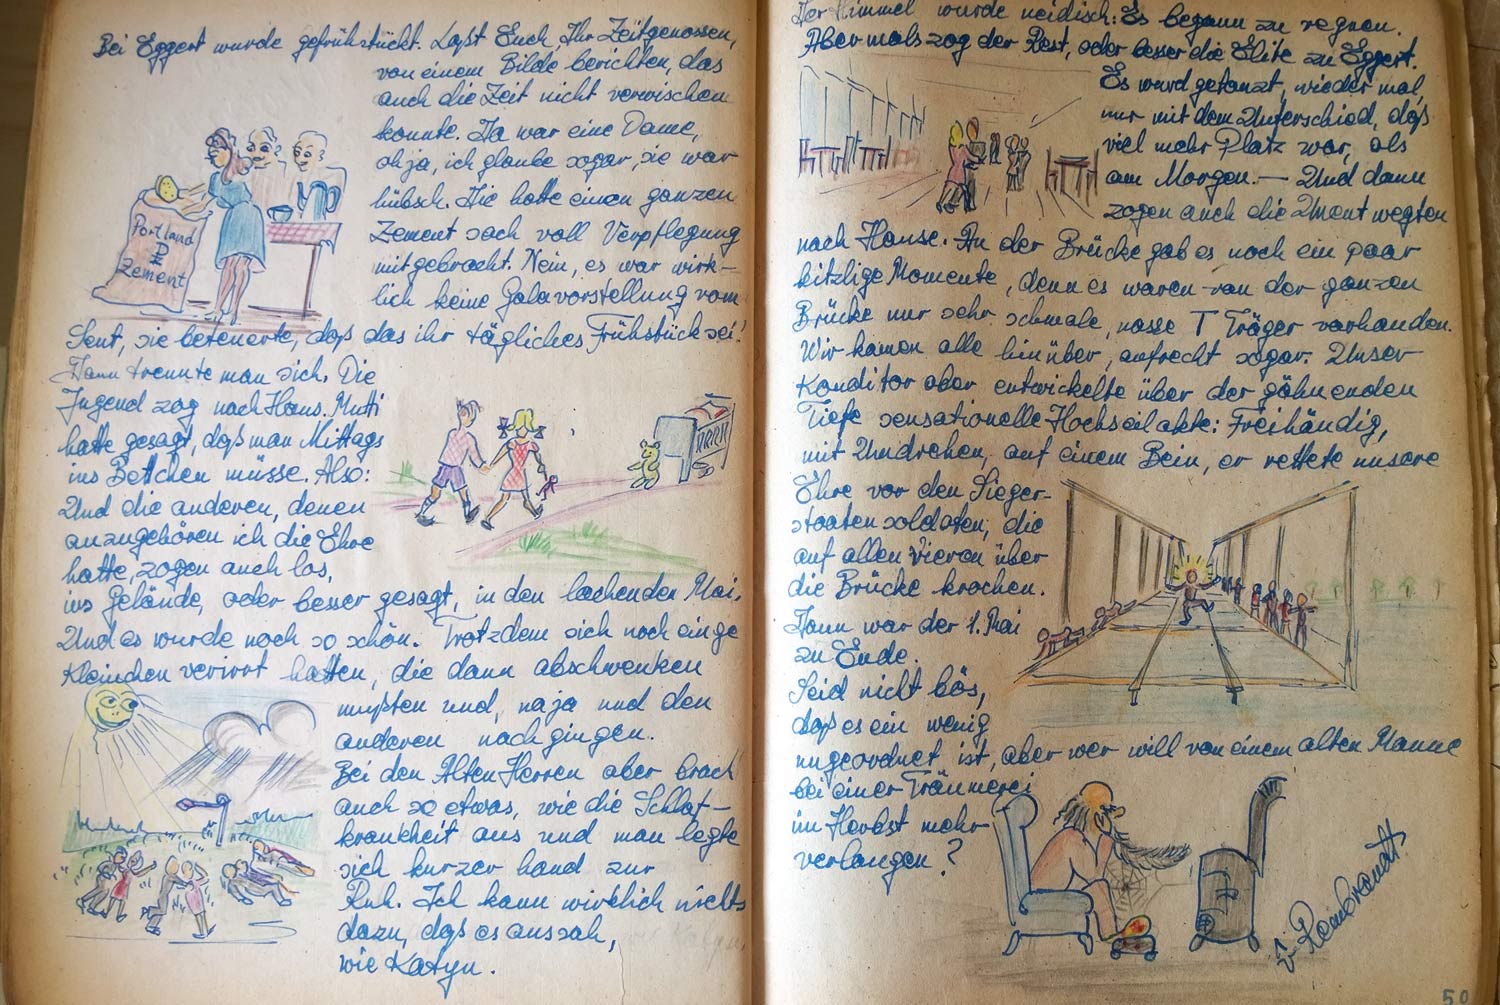 Bei Eggert wurde gefrühstückt. Laßt Euch, Ihr Zeitgenossen,
von einem Bilde berichten, das
auch die Zeit nicht verwischen
konnte. Da war eine Dame,
oh ja, ich glaube sogar, sie war
hübsch. Die hatte einen ganzen
Zement sack voll Verpflegung
mitgebracht. Nein, es war wirk-
lich keine Galavorstellung vom
Sent, sie beteuerte, daß das ihr tägliches Frühstück sei!
Portland
Zement
Dann trennte man sich. Die
Jugend zog nach Haus. Mutti
hatte gesagt, daß man Mittags
ins Bettchen müsse. Also:
Und die anderen, denen
anzugehören ich die Ehre
hatte, zogen auch los,
ins Gelände, oder besser gesagt, in den lachenden Mai.
Und es wurde noch so schön. Trotzdem sich noch einge
Kleinchen verirrt hatten, die dann abschwenken
mußten und, naja und den
anderen nachgingen.
Bei den Alten Herren aber brach
auch so etwas, wie die Schlaf-
krankheit aus und man legte
sich kurzer hand zur
Ruh. Ich kann wirklich nichts
dazu, daß es aussah,
wie Katyn.
Der Himmel wurde neidisch: Es begann zu regnen.
Abermals zog der Rest, oder besser die Elite zu Eggert.
Es wurd getanzt, wieder mal,
nur mit dem Unterschied, daß
viel mehr Platz war, als
am Morgen. — Und dann
zogen auch die Unent wegten
nach Hause. An der Brücke gab es noch ein paar
kitzlige Momente, denn es waren von der ganzen
Brücke nur sehr schmale, nasse T Träger vorhanden.
Wir kamen alle hinüber, aufrecht sogar. Unser
Konditor aber entwickelte über der gähnenden
Tiefe sensationelle Hochseilakte: Freihändig,
mit Umdrehen, auf einem Bein, er rettete unsere
Ehre vor den Sieger-
staatensoldaten, die
auf allen Vieren über
die Brücke krochen.
Dann war der 1. Mai
zu Ende.
Seid nicht bös,
daß es ein wenig
ungeordnet ist, aber wer will von einem alten Manne
bei einer Träumerei
im Herbst mehr
verlangen?
Rembrandt
50